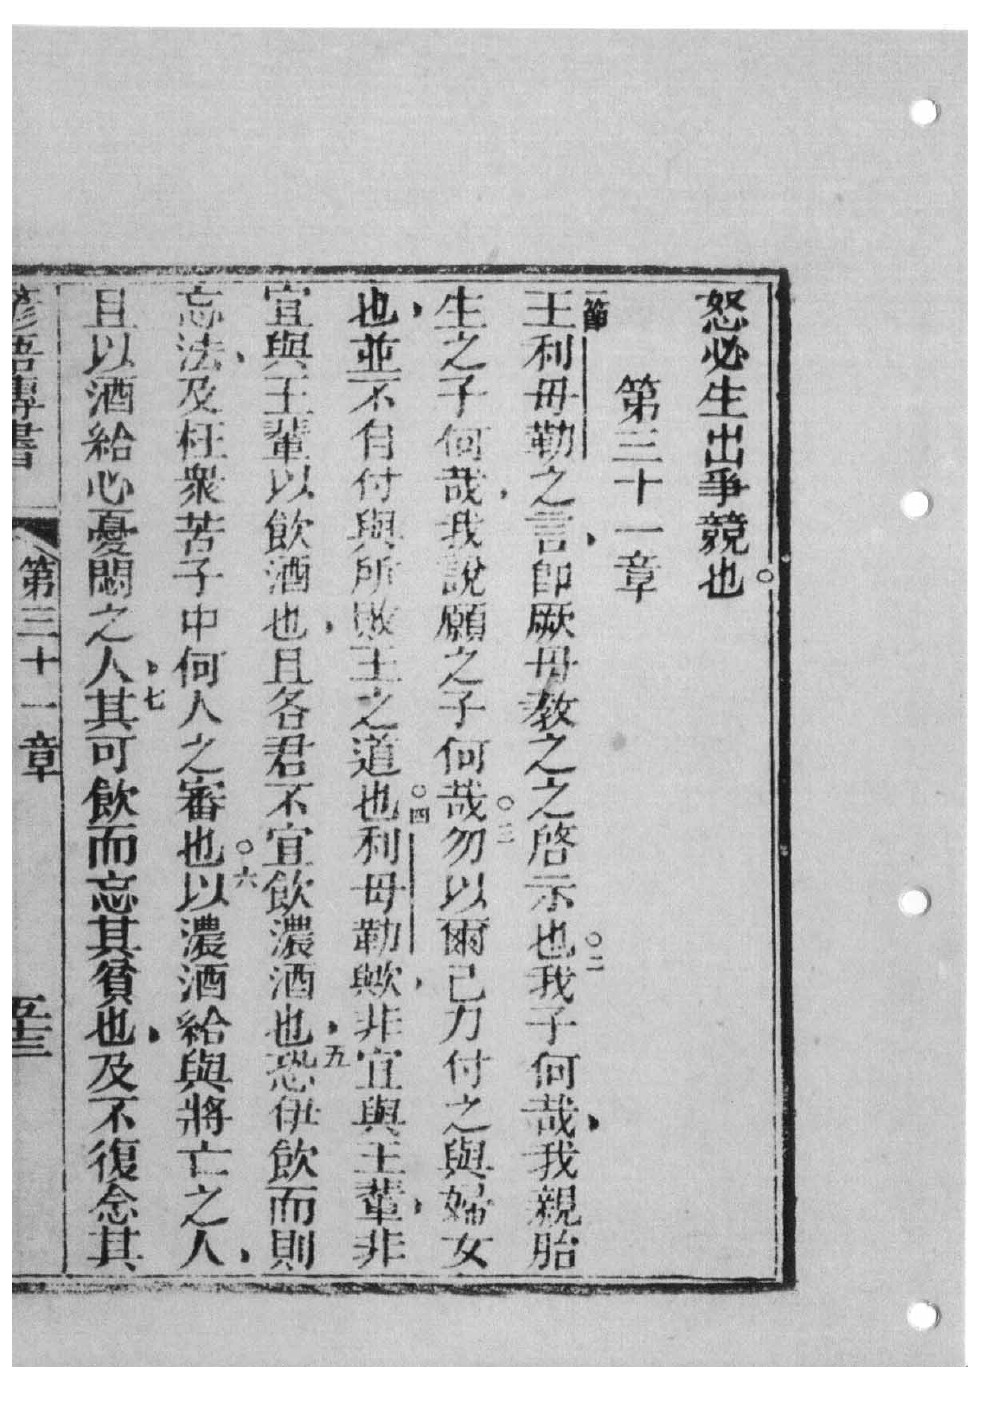 怒必生出爭競也○
第三十一章
一節王利母勒之言、即厥母教之之啓示也○二我子何哉、我親胎
生之子何哉、我說願之子何哉○三勿以爾己力付之與婦女
也、並不自付與所敗王之道也○四利母勒歟、非宜與王輩、非
宜與王輩以飲酒也、且各君不宜飲濃酒也、五恐伊飲而則
忘法、及枉衆苦子中何人之審也○六以濃酒給與將亡之人、
且以酒給心憂悶之人、七其可飲而忘其貧也、及不復念其
第三十一章
五十三